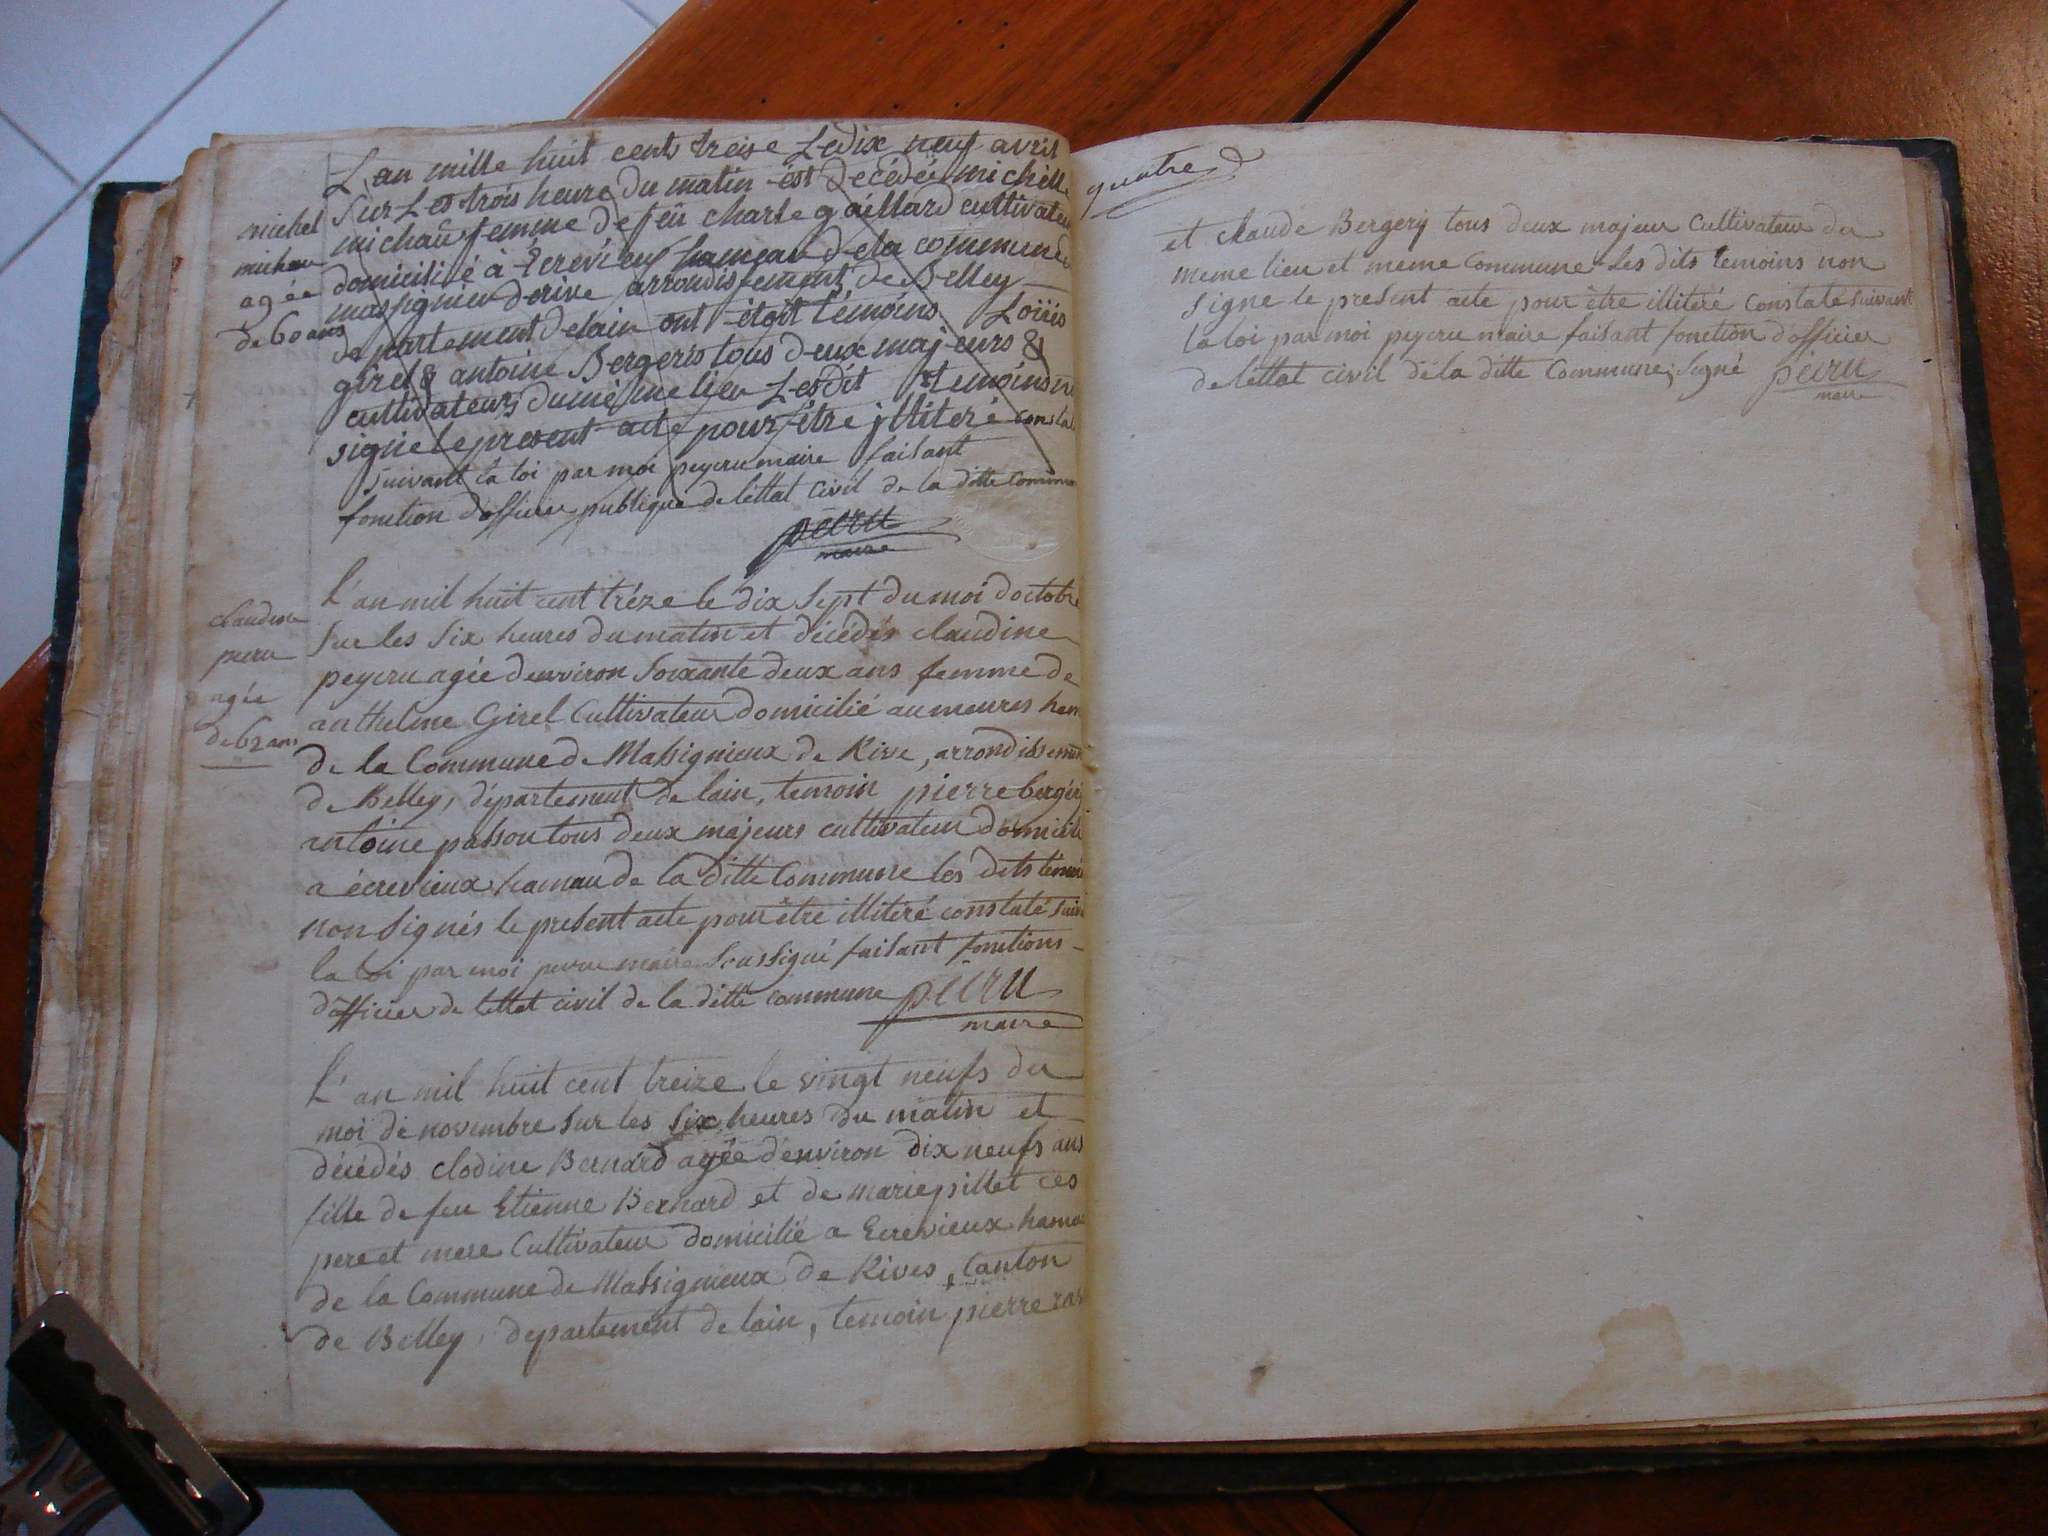 L'an mille huit cents treise Le dix neuf avril
sur Les trois heure du matin est decedée michelle
michau femme de feû charle gaillard cultivateur
domicilié à Ecrevieux hameau dela commune de
massignieu derive arrondissement de Belley
departement delain ont étoit témoins Loüis
girel & antoine Bergerit tous deux majeurs &
cultivateurs du même lieu Les dit temoins
signe le present acte pour être jlliteré consta
suivant la loi par moi peycru maire faisant
fonction d'officier publique de lettat civil de la ditte Commu
pecru
maire
michel
michau
agée
de 60 ans
L'an mil huit cent tréze le dix sept du moi doctobre
sur les six heures du matin et décédés claudine
peycru agée denviron soixante deux ans femme de
anthelme Girel Cultivateur domicilié au meures ham
de la Commune de Massignieux de Rive, arrondissemen
de Belley, département de lain, temoin pierre bergeri
antoine passou tous deux majeurs cultivateur domicili
a écrevieux hamau de la ditte Commune les dits témoi
non signés le present acte pour être illiteré constaté suiv
la loi par moi pecru maire soussigné faisant fonctions
dofficier de lettat civil de la ditte commune pecru
maire
claudine
pecru
agée
de 62 ans
L'an mil huit cent treize le vingt neufs du
moi de novembre sur les six heures du matin et
décédés clodine Bernard agée d'environ dix neufs ans
fille de feu Etienne Bernard et de marie pillet ces
pere et mere Cultivateur domicilié a Ecrevieux hamau
de la Commune de Massignieux de Rives, Canton
de Belley, departement de lain, temoin pierre
quatre
et claude Bergery tous deux majeur Cultivateur du
meme lieu et meme Commune Les dits temoins non
signe le present acte pour être illiteré Constaté suivant
la loi par moi peycru maire faisant fonction d'officier
de lettat civil dela ditte Commune, signé pecru
maire